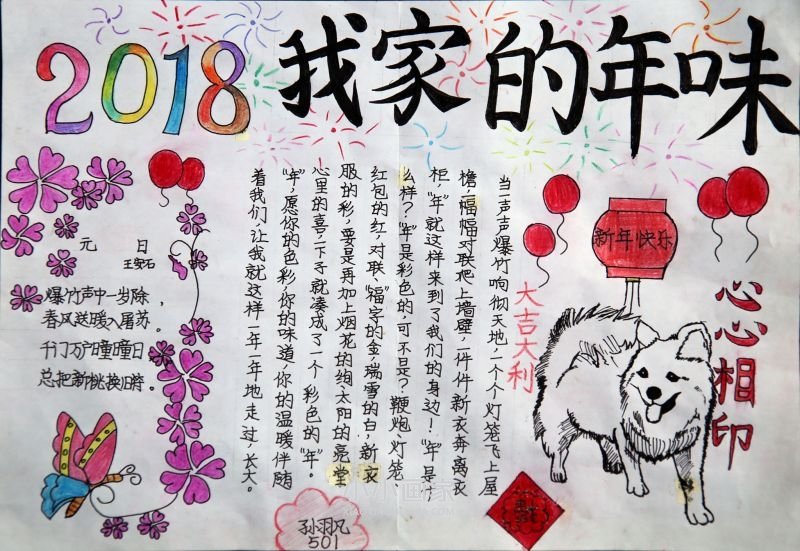 2018 我家的年味
元 日
王安石
爆竹声中一岁除，
春风送暖入屠苏。
千门万户曈曈日
总把新桃换旧符。
当一声声爆竹响彻天地，一个个灯笼飞上屋
檐，幅幅对联爬上墙壁，一件件新衣奔离衣
柜，“年”就这样来到了我们的身边！“年”是什
么样？“年”是彩色的，可不是？鞭炮、灯笼、
红包的红，对联“福”字的金，瑞雪的白，新衣
服的彩，要是再加上烟花的绚，太阳的亮堂
心里的喜，一下子就凑成了一个彩色的“年”。
“年”，愿你的色彩，你的味道，你的温暖伴随
着我们，让我就这样一年一年地走过、长大。
新年快乐
大吉大利
心心相印
孙羽凡
501
小小画家